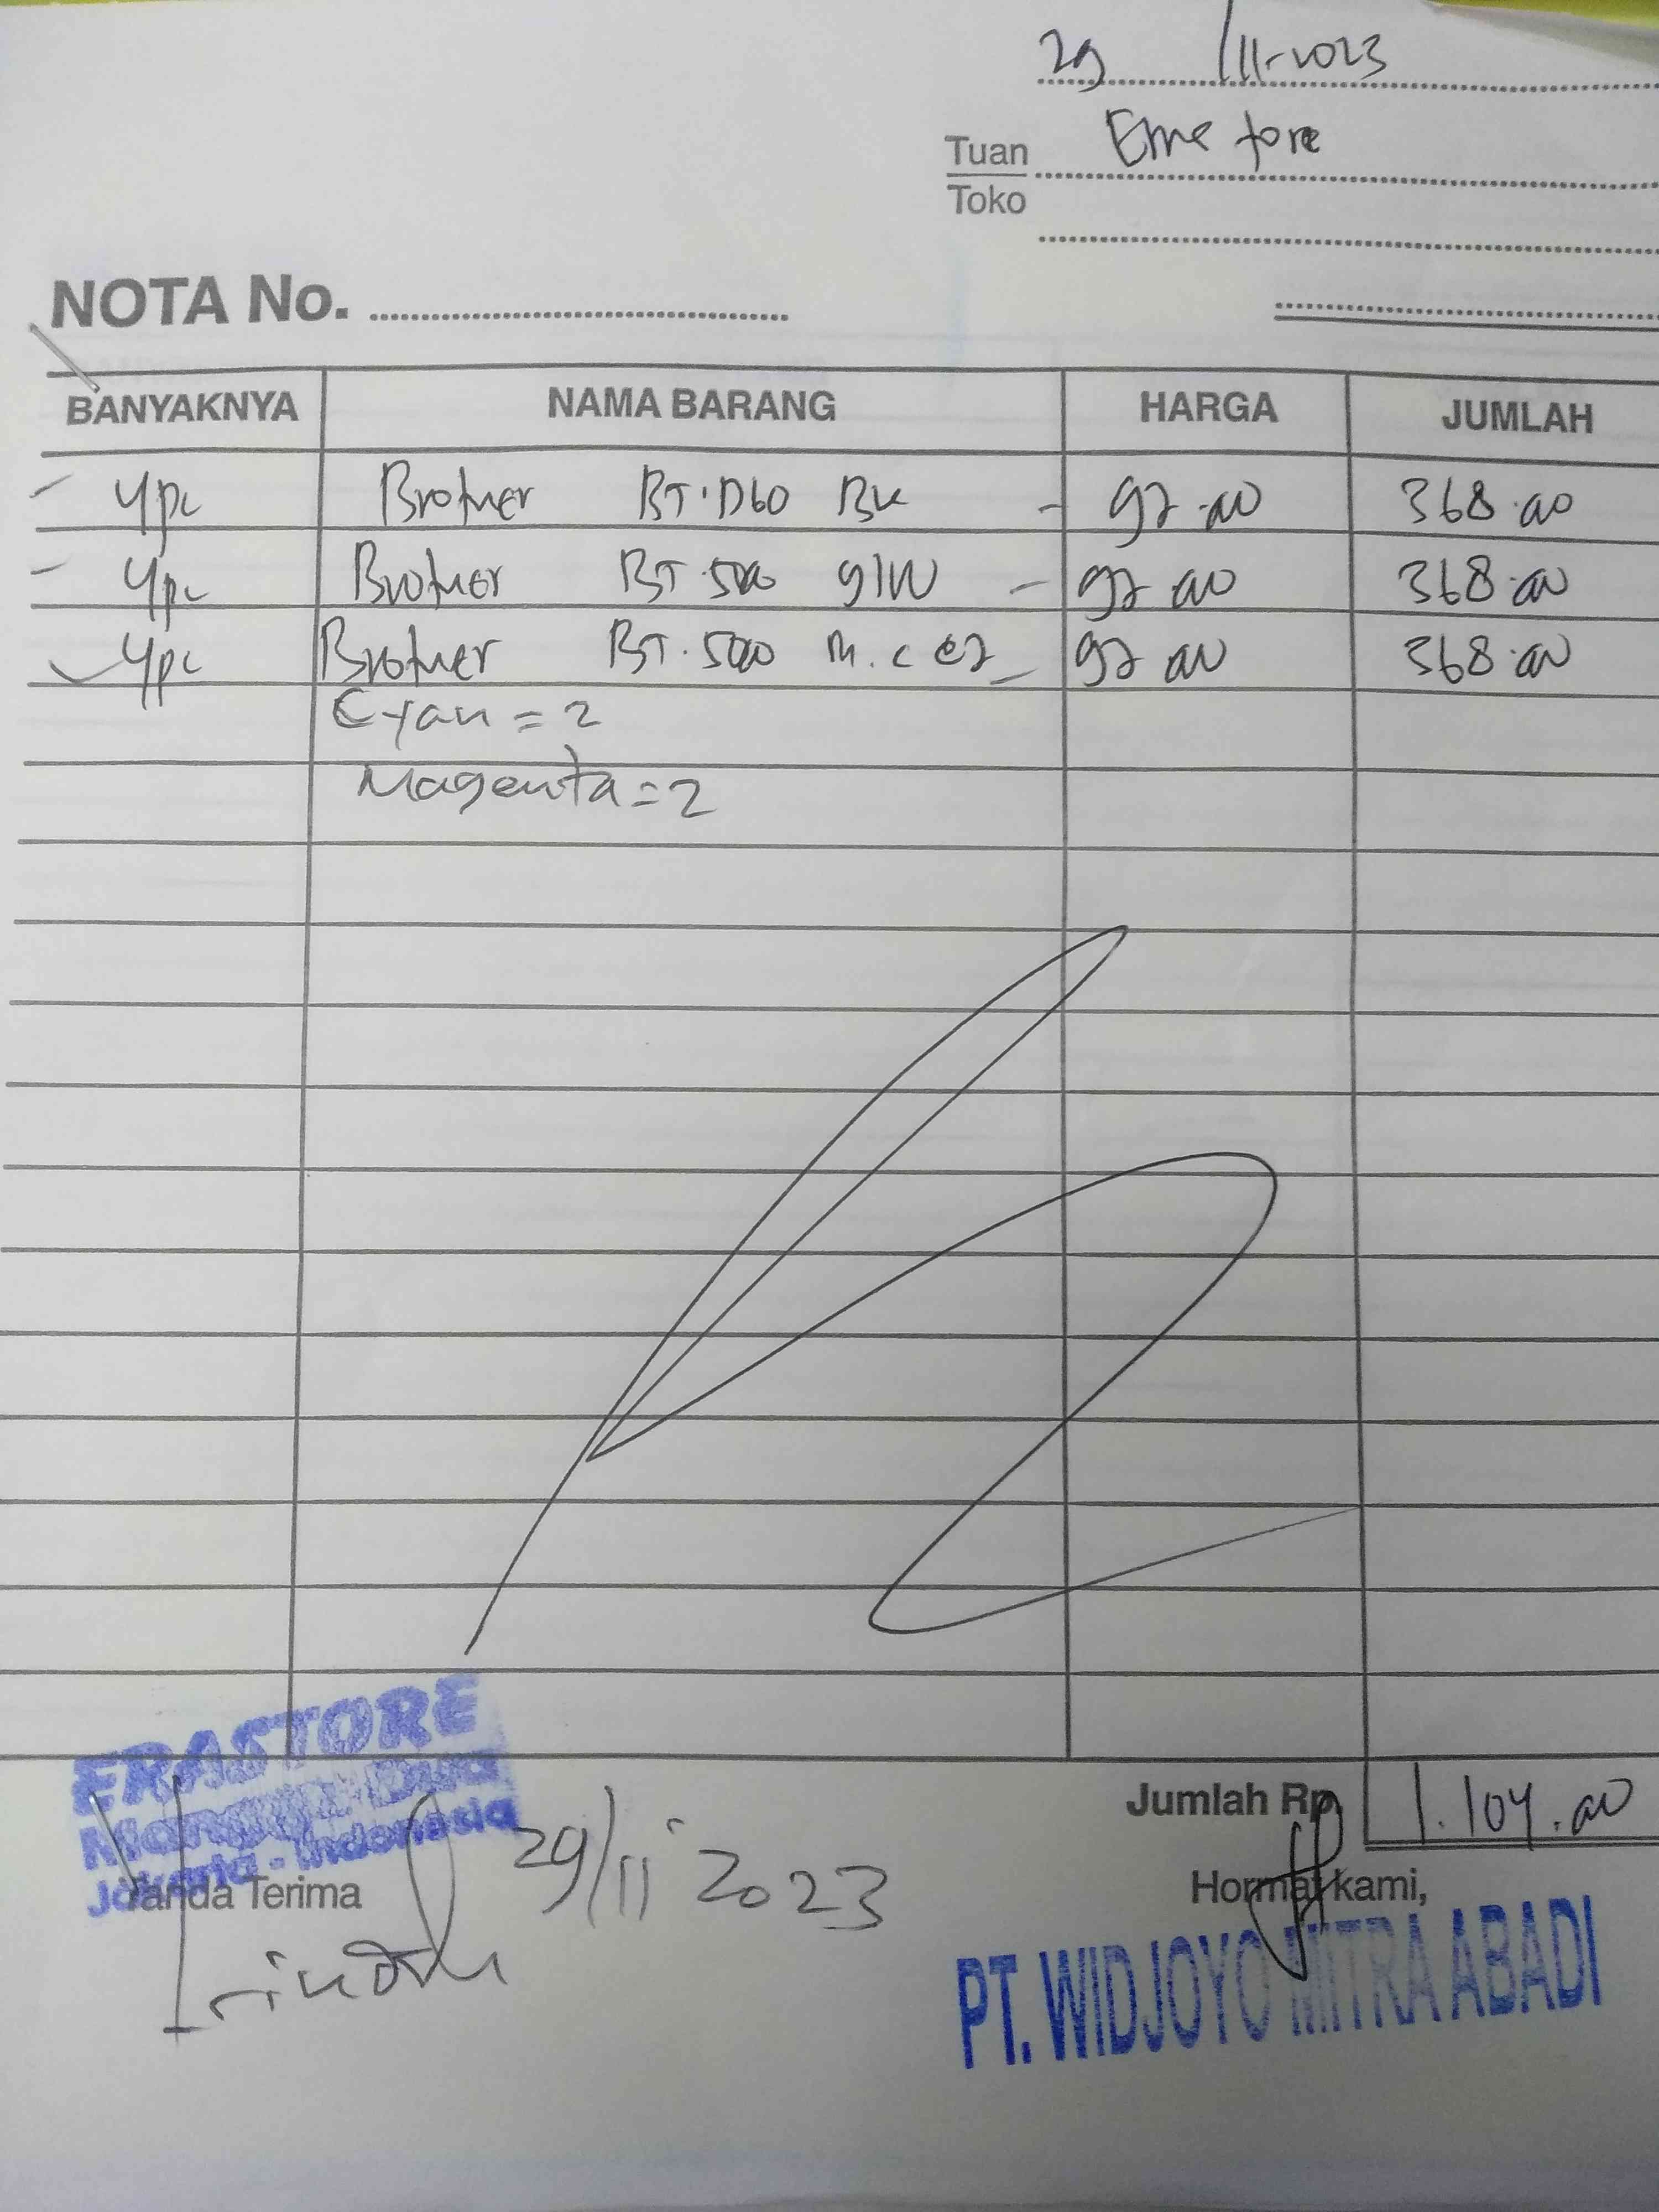 29 /11-2023
Tuan
Toko
NOTA No.
BANYAKNYA NAMA BARANG HARGA JUMLAH
4pc Brother BT.D60 BK - 92.00 368.00
4pc Brother BT.5000 - 92.00 368.00
4pc Brother BT.5000 M.C @2 - 92.00 368.00
Cyan = 2
Magenta = 2
ERASTORE
Jakarta - Indonesia
Jumlah Rp 1.104.00
29/11 2023
Tanda Terima
Hormat kami,
PT. WIDJOYO MITRA ABADI